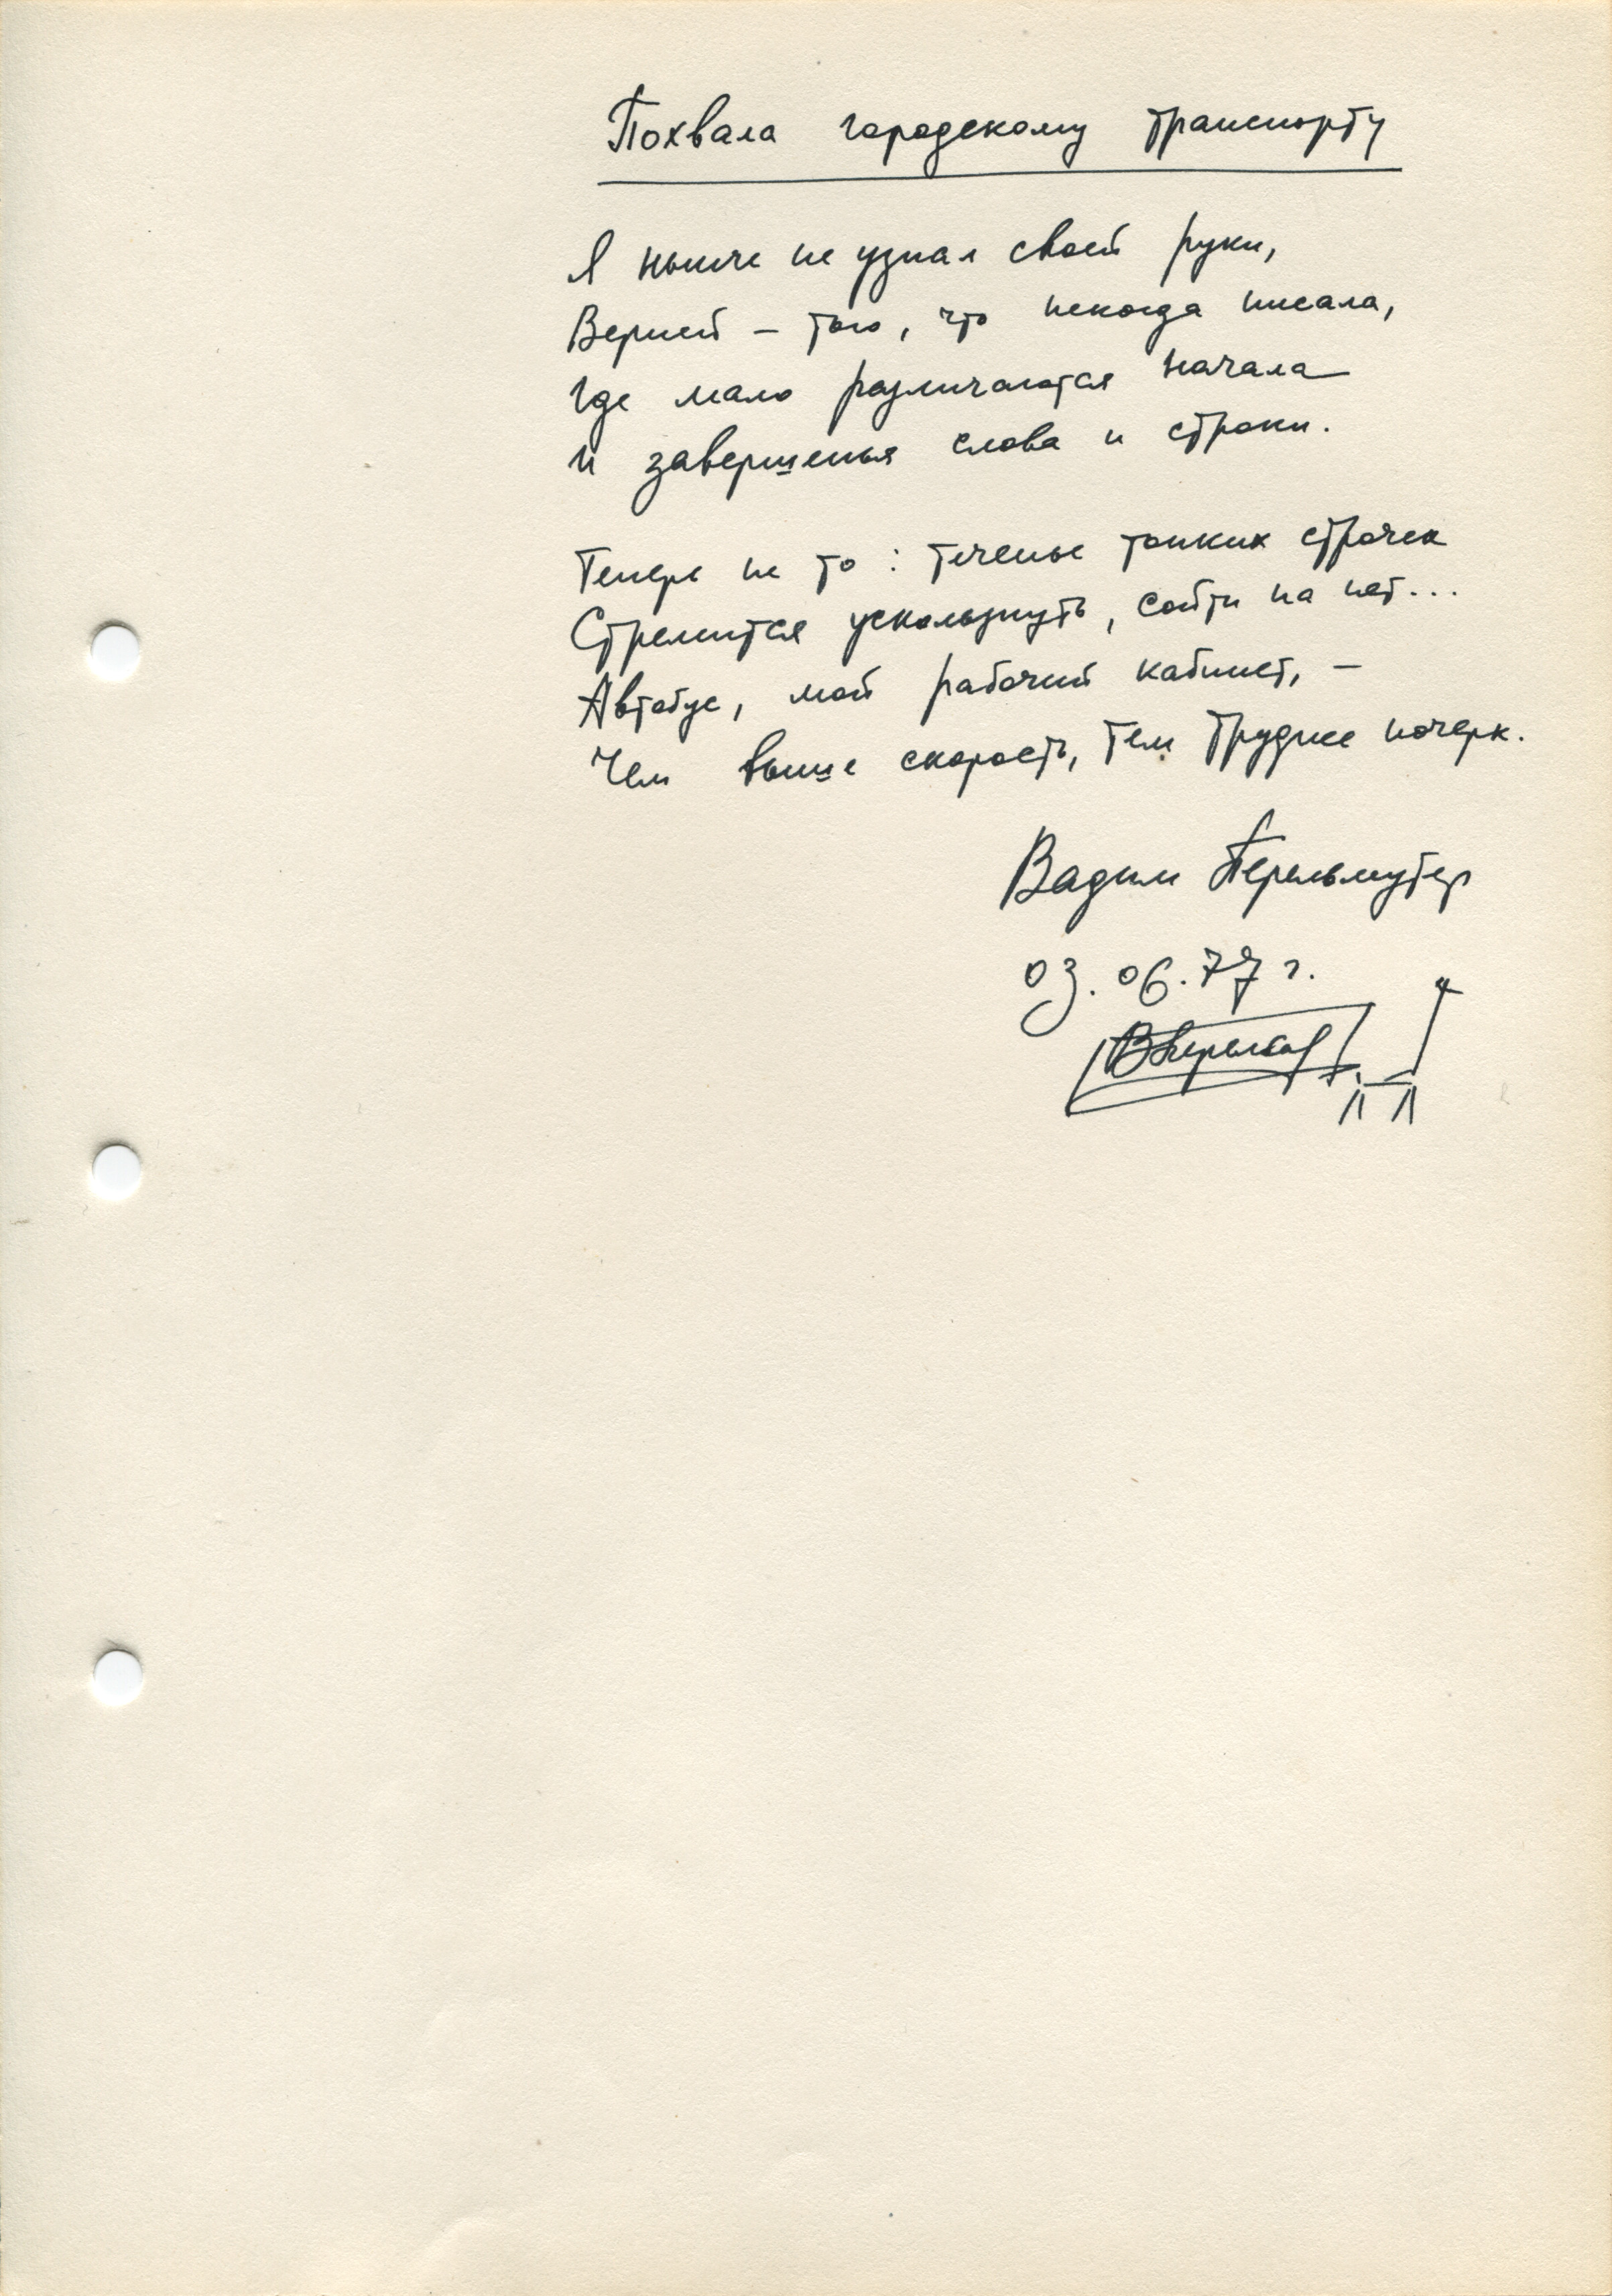 Похвала городскому транспорту
Я нынче не узнал своей руки,
Верней – того, что некогда писала,
Где мало различаются начала
И завершенья слова и строки.
Теперь не то: теченье тонких строчек
Стремится ускользнуть, сойти на нет...
Автобус, мой рабочий кабинет, –
Чем выше скорость, тем труднее почерк.
Вадим Перельмутер
03.06.77 г.